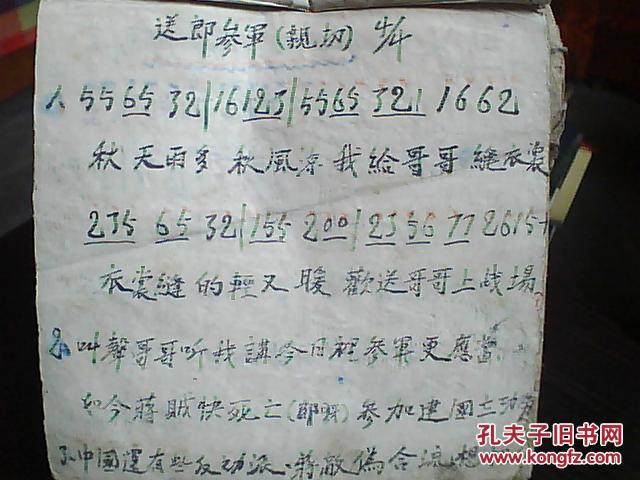 送郎參軍(親切) 4/4
1. 55 65 32|16123|5565 321 1662
秋天雨多秋風涼我給哥哥縫衣裳
235 65 32|155 200|23 56 77 2615-
衣裳縫的輕又暖歡送哥哥上战場
2. 叫聲哥哥听我講今日裡參軍更應當
如今蔣賊快死亡(耶呀)參加建國立功
3. 中國還有些反动派.蔣敵偽合流想
孔夫子旧书网
www.kongfz.com